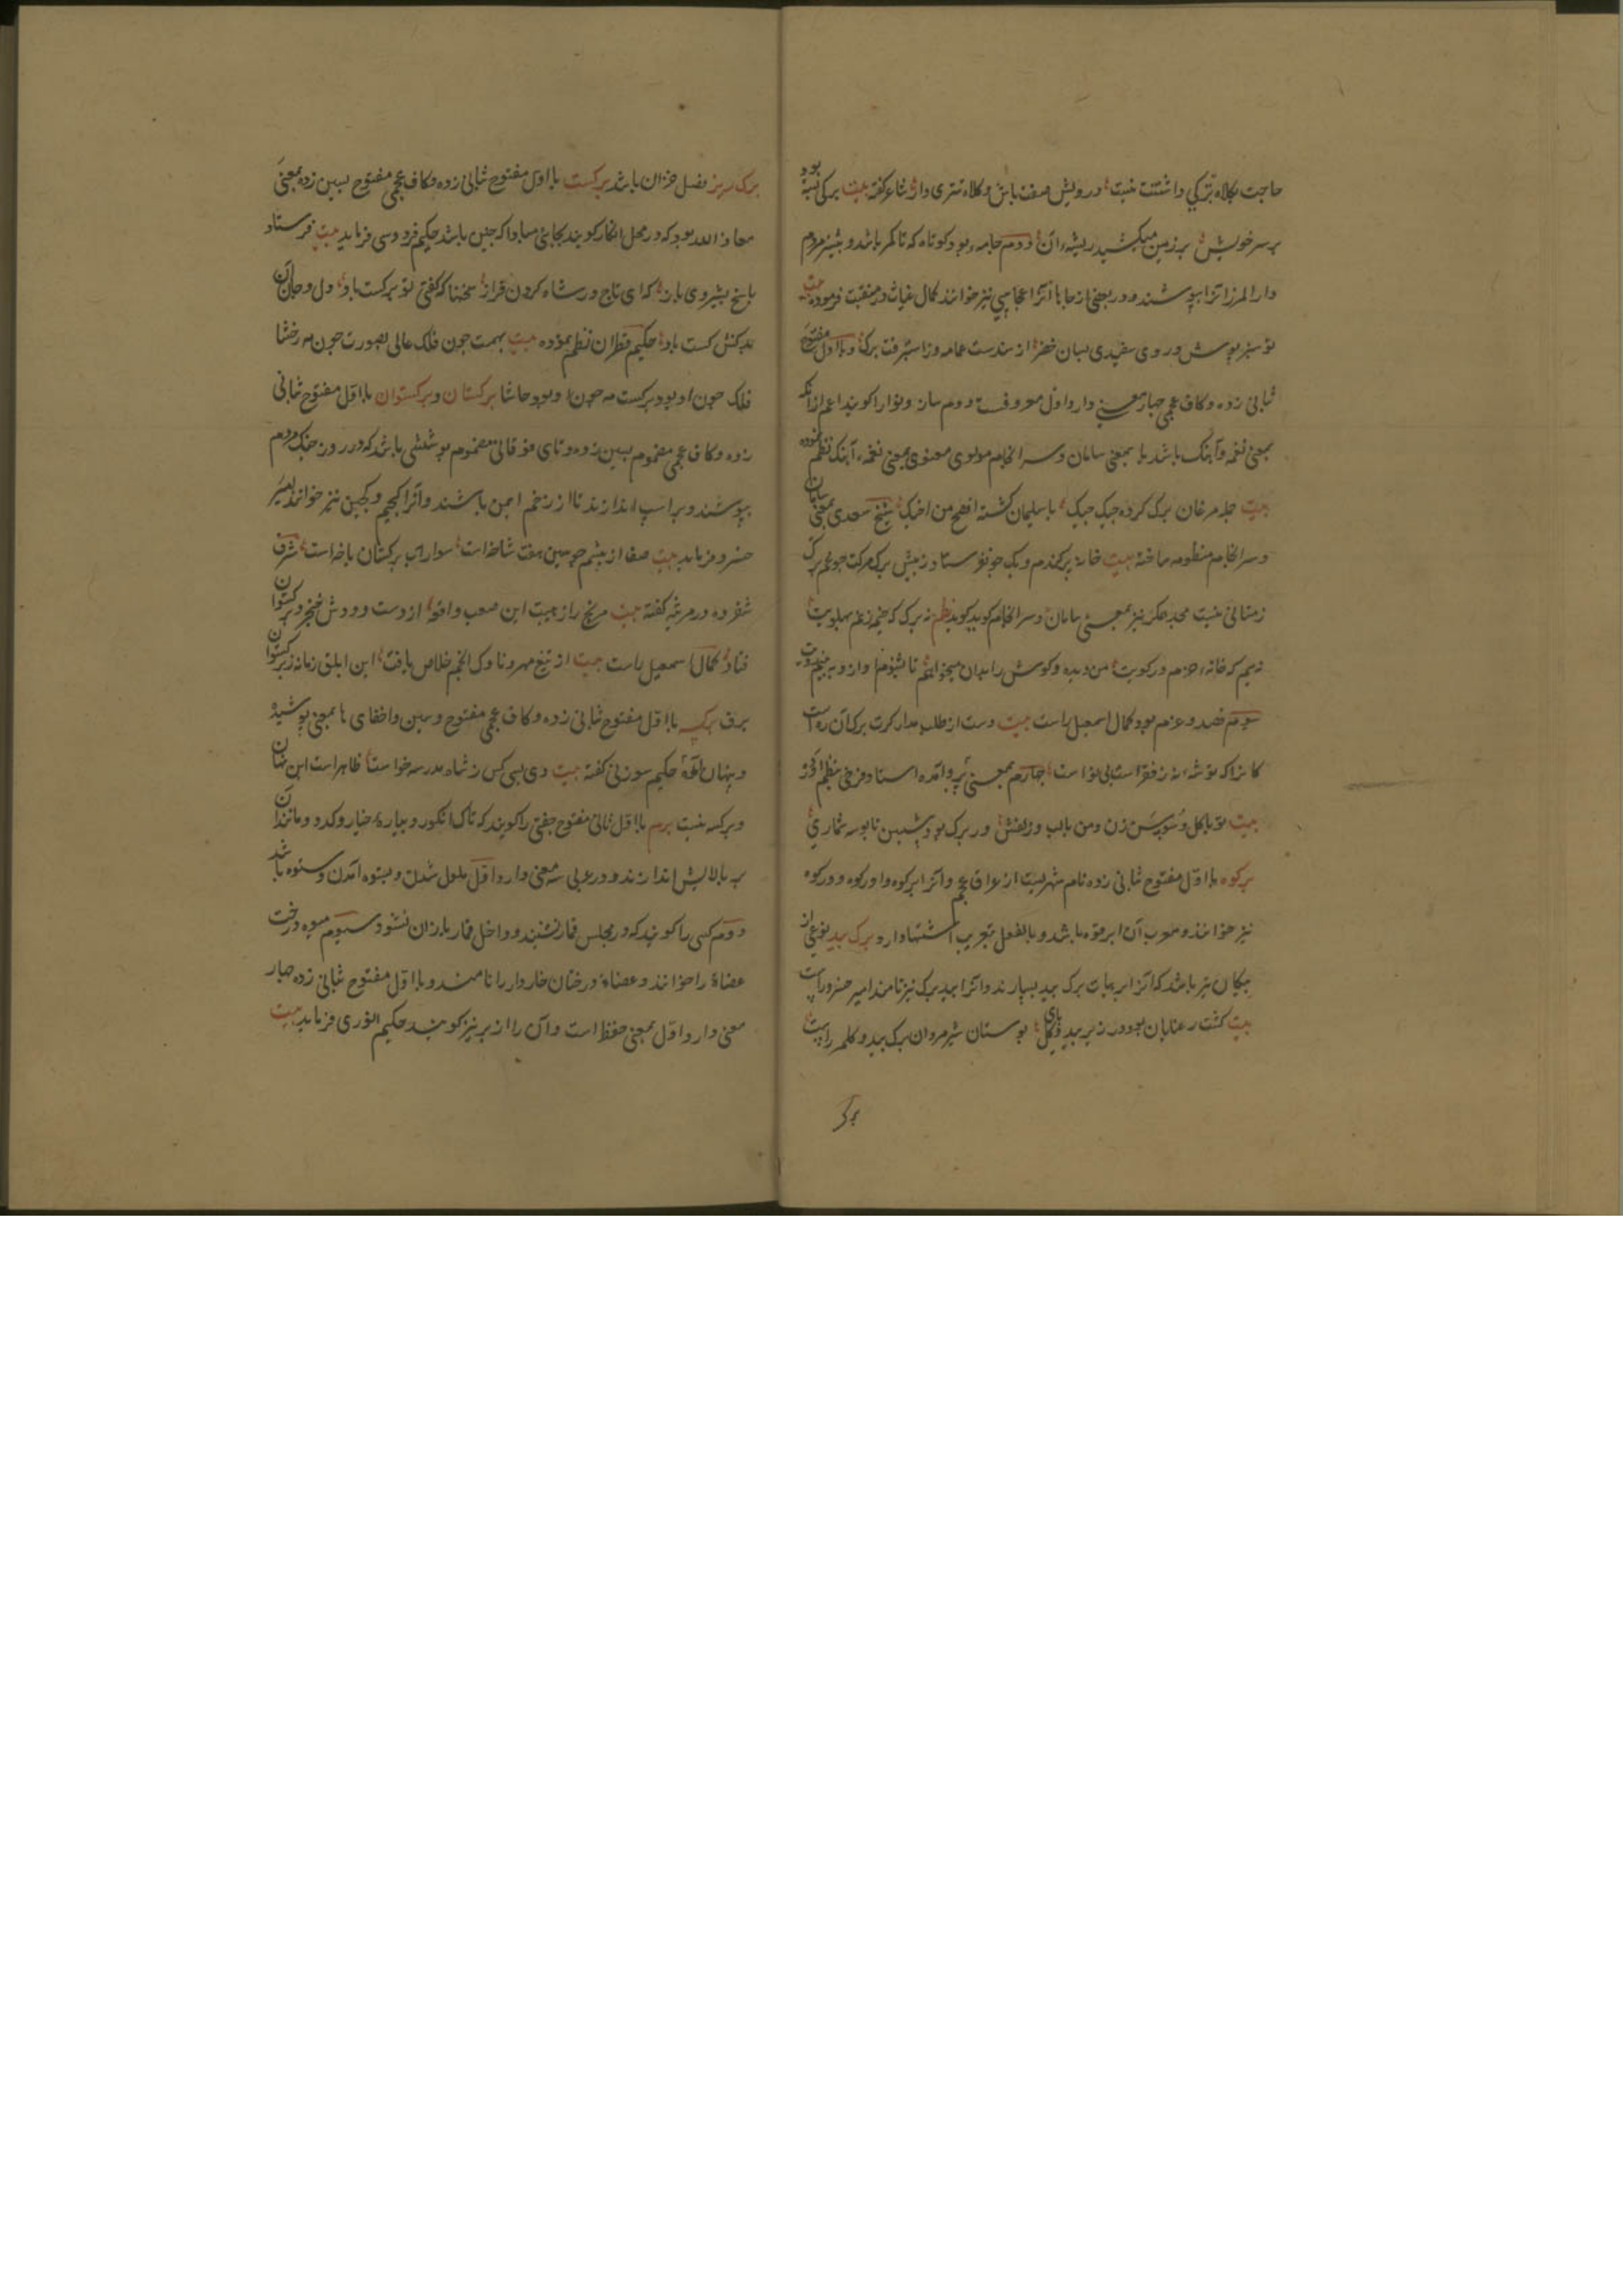 حاجت بکلاه ترکی داشتنت نیست درویش صفت باش و کلاه تتری دار شاعر گفته بیت برکی بسته بود
بر سر خویش بر زمین میکشید ریشه آن دوم جامه بود کوتاه که تا کمر باشد و بیشتر مردم
دار المرز انرا پوشند و در بعضی از جاها آنرا نیز خوانند کمال غیاث در منقبت فرموده بیت
تو سبز پوش و روی سفیدی بسان خضر از سندست عمامه وز استبرقت برک و با اول مفتوح
بثانی زده و کاف عجمی چهار معنی دارد اول معروفست دوم ساز و نوا را کویند اعم از آنکه
بمعنی نغمه و آهنک باشد یا بمعنی سامان و سرانجام مولوی معنوی بمعنی نغمه و آهنک نظم نموده
بیت جمله مرغان برک کرده جیک جیک با سلیمان کشته افصح من اخیک شیخ سعدی بمعنی سامان
و سرانجام منظومه ساخته بیت خانه پر کندم و یک جو نفرستاده ز پیش برک مرکت چو غم برک
زمستانی نیست مجد همکر نیز بمعنی سامان و سرانجام کوید نظم نه برک که خیمه زنم پهلویت
نه سیم که خانه خرم در کویت من دیده و کوش را بدان میخواهم تا شنوم آواز و به بینم رویت
سوم قصد و عزم بود کمال اسمعیل راست بیت دست از طلب مدار کرت برک آن ره است
کانرا که توشه نه ز فقر است بی نوا است چهارم بمعنی پروا آمده استاد فرخی بنظم آورد
بیت تو با کل و سوسن زن و من با لب و زلفش ور برک بود بنشین تا بوسه شماری
برکوه با اول مفتوح بثانی زده نام شهریست از عراق عجم و آنرا ابرکوه و اورکوه و ورکوه
نیز خوانند و معرب آن ابرقوه باشد و بالفعل بتعریب اشتهار دارد برک بید نوعی از
پیکان تیر باشد که آنرا بهیات برک بید بسازند و آنرا بید برک نیز نامند امیر خسرو راست
بیت کشت رعنایان بود در زیر بید و پای کل بوستان شیر مردان برک بید و کلمر است
برک
برک ریز فصل خزان باشد برکست با اول مفتوح بثانی زده و کاف عجمی مفتوح بسین زده بمعنی
معاذ الله بود که در محل انکار کویند بجای مبادا که چنین باشد حکیم فردوسی فرماید بیت فرستاد
پاسخ بشیروی باز که ای تاج ور شاه کردن فراز سخنها که کفتی تو برکست باد دل و جان آن
بدکنش کست باد حکیم قطران نظم نموده بیت بهمت چون فلک عالی بصورت چون مه رخشا
فلک چون او بود برکست مه چون او بود حاشا برکستان و برکستوان با اول مفتوح بثانی
زده و کاف عجمی مضموم بسین زده و تای فوقانی مضموم پوششی باشد که در روز جنک مردم
بپوشند و بر اسپ اندازند تا از زخم ایمن باشند و آنرا کجیم و کجین نیز خوانند امیر
خسرو فرماید بیت صفا از پشم چوبین هفت شاخه است سواران برکستان با خه است شرف
شفروه در مرثیه کفته بیت مریخ را ز هیبت این صعب واقعه از دست و دوش خنجر و برکستوان
فتاد کمال اسمعیل راست بیت از تیغ مهر و ناوک انجم خلاص یافت این ابلق زمانه ز برکستوان
برف برکسه با اول مفتوح بثانی زده و کاف عجمی مفتوح و سین و اخفای ها بمعنی پوشیده
و پنهان آمده حکیم سوزنی کفته بیت دی بسی کس ز شاه مدرسه خواست ظاهر است این نهان
و برکسه نیست برم با اول و ثانی مفتوح جفتی را کویند که تاک انکور و بیاره خیار و کدو و مانند آن
بر بالایش اندازند و در عربی سه معنی دارد اول ملول شدن و بستوه آمدن و ستوه باشد
دوم کسی را کویند که در مجلس قمار نشیند و داخل قمار بازان نشود سیوم میوه درخت
عضاه را خوانند و عضاه درختان خاردار را نامند و با اول مفتوح بثانی زده چهار
معنی دارد اول بمعنی حفظ است و آن را از بر نیز کویند حکیم انوری فرماید بیت